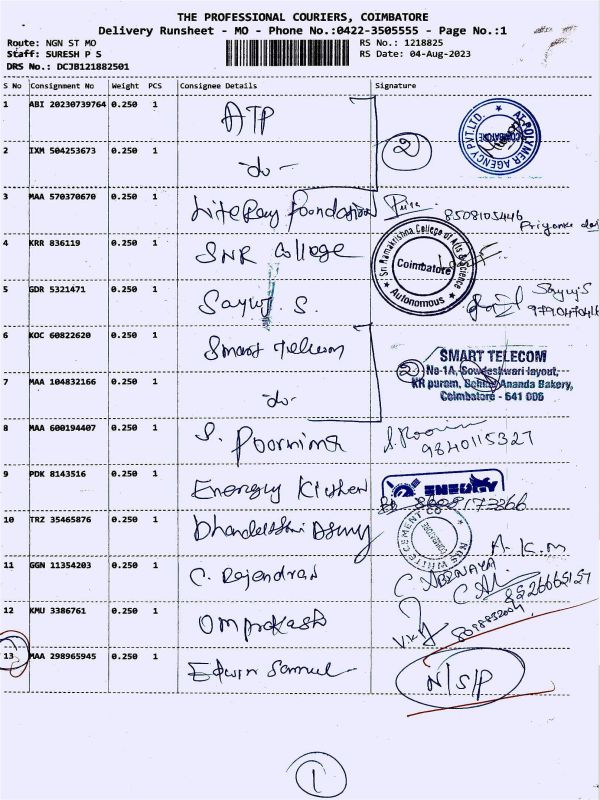 THE PROFESSIONAL COURIERS, COIMBATORE
Delivery Runsheet - MO - Phone No.:0422-3505555 - Page No.:1
Route: NGN ST MO RS No.: 1218825
Staff: SURESH P S RS Date: 04-Aug-2023
DRS No.: DCJB121882501
S No Consignment No Weight PCS Consignee Details Signature
1 ABI 20230739764 0.250 1 ATP
AT-POLYMER AGENCY PVT.LTD. COIMBATORE
2 IXM 504253673 0.250 1 -do- 2
3 MAA 570370670 0.250 1 Literacy foundation 8508105446
Priyanka
4 KRR 836119 0.250 1 SNR College
Sri Ramakrishna College of Arts & Science Coimbatore Autonomous
5 GDR 5321471 0.250 1 Sayuj. S. Sayuj S
9790470416
6 KOC 60822620 0.250 1 Smart Telecom
SMART TELECOM
2 No-1A, Sowdeshwari layout,
7 MAA 104832166 0.250 1 -do- KR puram, Behind Ananda Bakery,
Coimbatore - 641 006
8 MAA 600194407 0.250 1 S. Poornima
9840115327
9 PDK 8143516 0.250 1 Energy Kitchen ENERGY
10 TRZ 35465876 0.250 1
WHITE CEMENT COIMBATORE
A.K.M
11 GGN 11354203 0.250 1 C. Rajendran C. ABINAYA
12 KMU 3386761 0.250 1 Omprakash
13 MAA 298965945 0.250 1 Edwin Samuel N/S/P
1